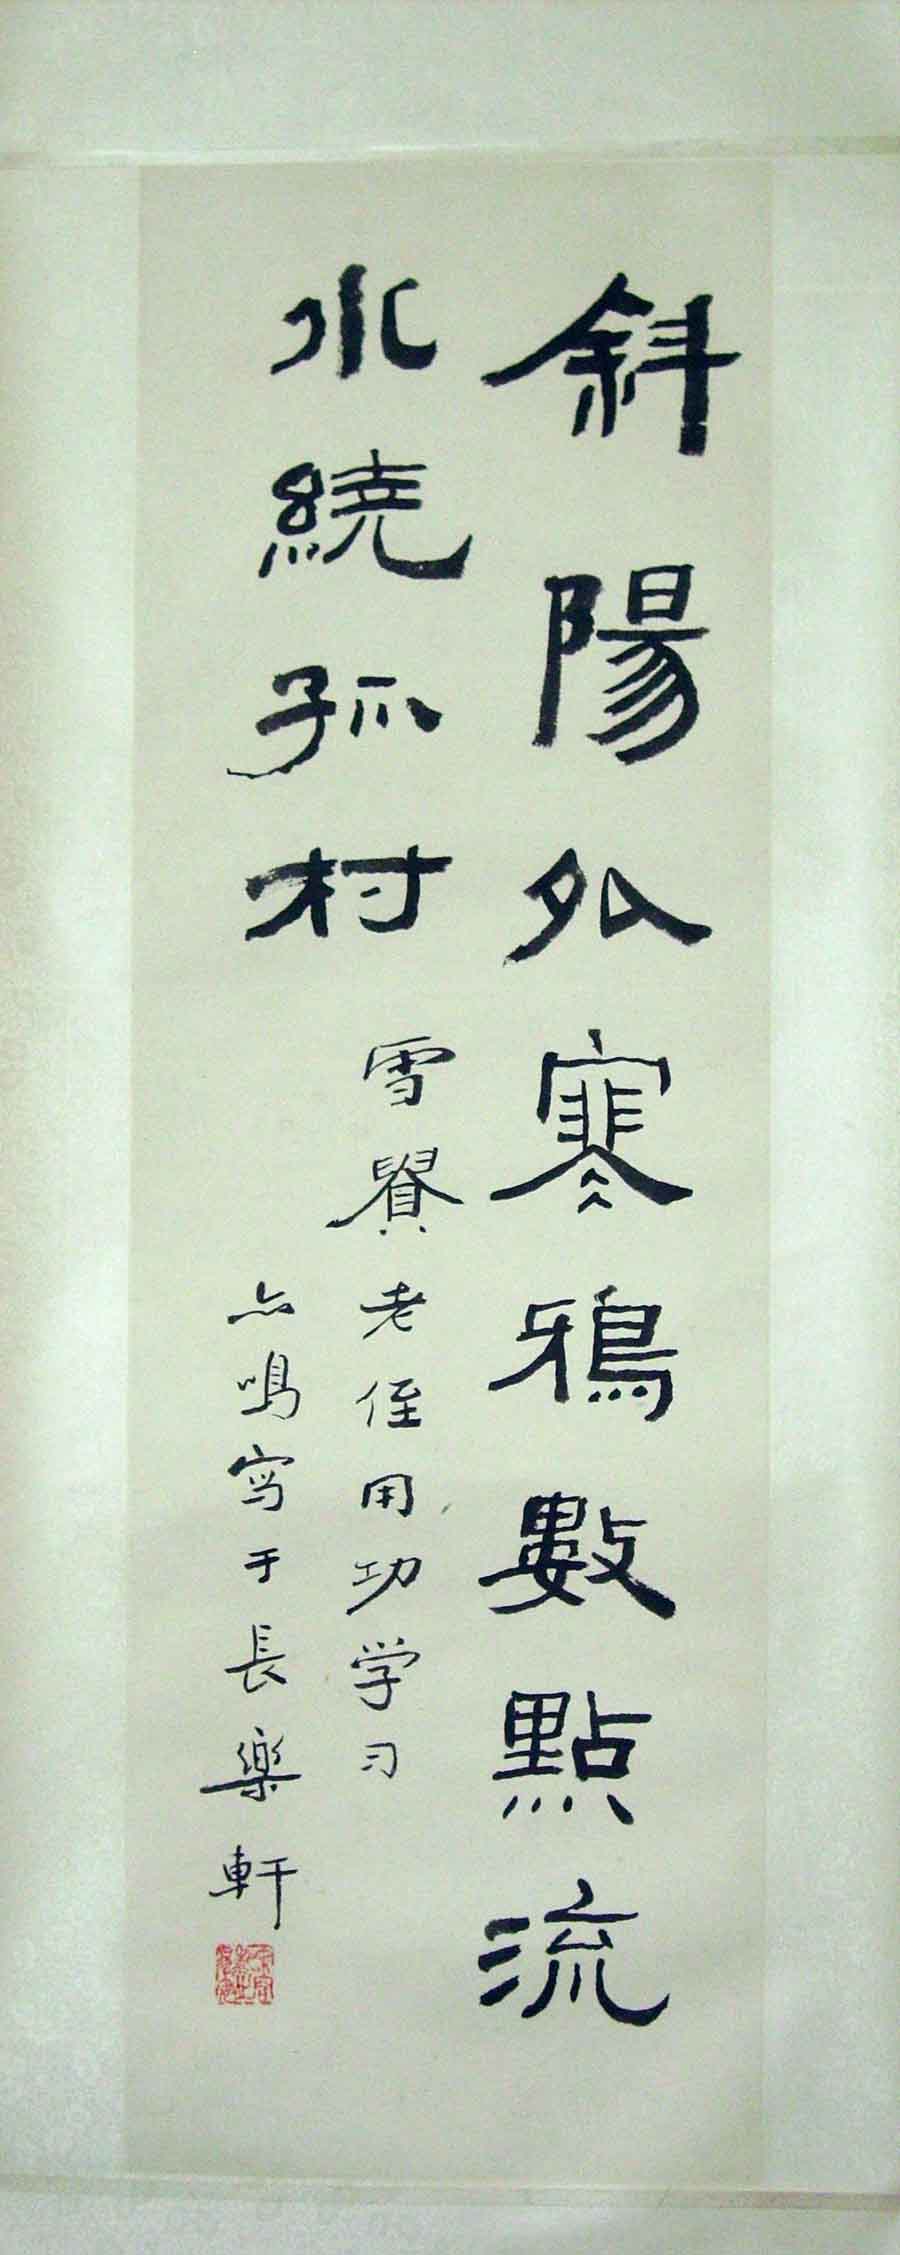 斜陽外寒鴉數點流
水繞孤村
雪賢老侄用功学习
亦鳴写于長樂軒